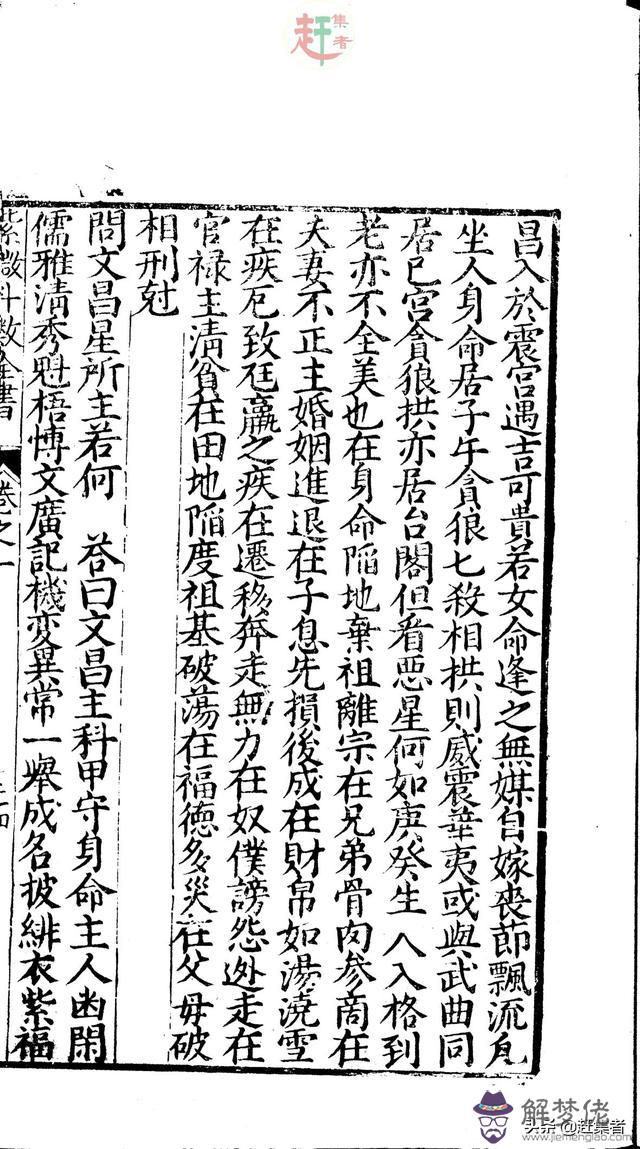 集
赶
者
昌入於震宮遇吉可貴若女命逢之無媒自嫁喪節飄流凢
坐人身命居子午貪狼七殺相拱則威震華夷或與武曲同
居巳宮貪狼拱亦居台閣但看惡星何如庚癸生人入格到
老亦不全美也在身命陷地棄祖離宗在兄弟骨肉參商在
夫妻不正主婚姻進退在子息先損後成在財帛如湯澆雪
在疾厄致尫羸之疾在遷移奔走無力在奴僕謗怨逃走在
官禄主清貧在田地陷度祖基破蕩在福德多災在父母破
相刑尅
問文昌星所主若何　荅曰文昌主科甲守身命主人凾閑
儒雅清秀魁梧愽文廣記機变異常一舉成名披緋衣紫福
紫微斗数全書
卷之一
解梦佬
www.jiemenglao.com
头条@赶集者